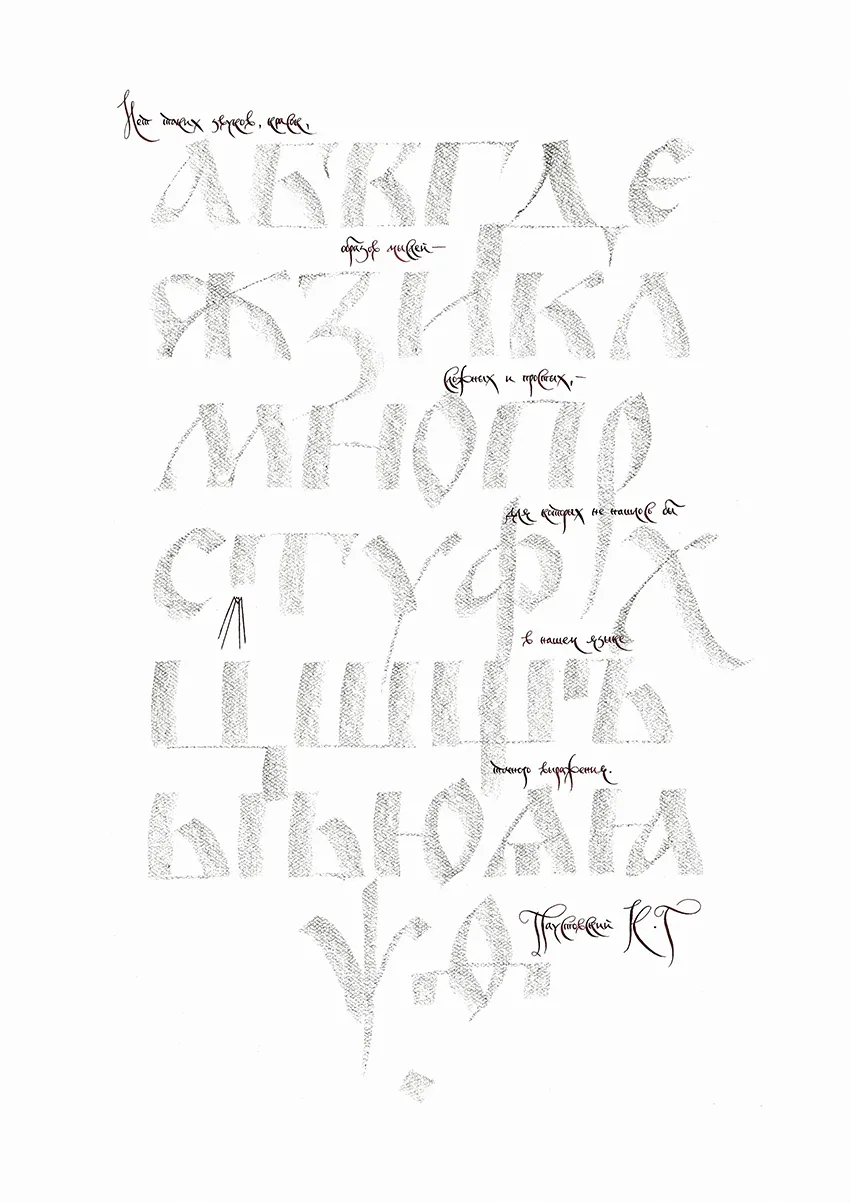 Нет таких звуков, красок,
АБВГДЕ
образов мыслей—
ЖЗИКЛ
сложных и простых,—
МНОПР
для которых не нашлось бы
СТУФХ
в нашем языке
ЦШЩЪ
точного выражения.
ЬЮѦꙖ
Паустовский К.Г
ѰѲ